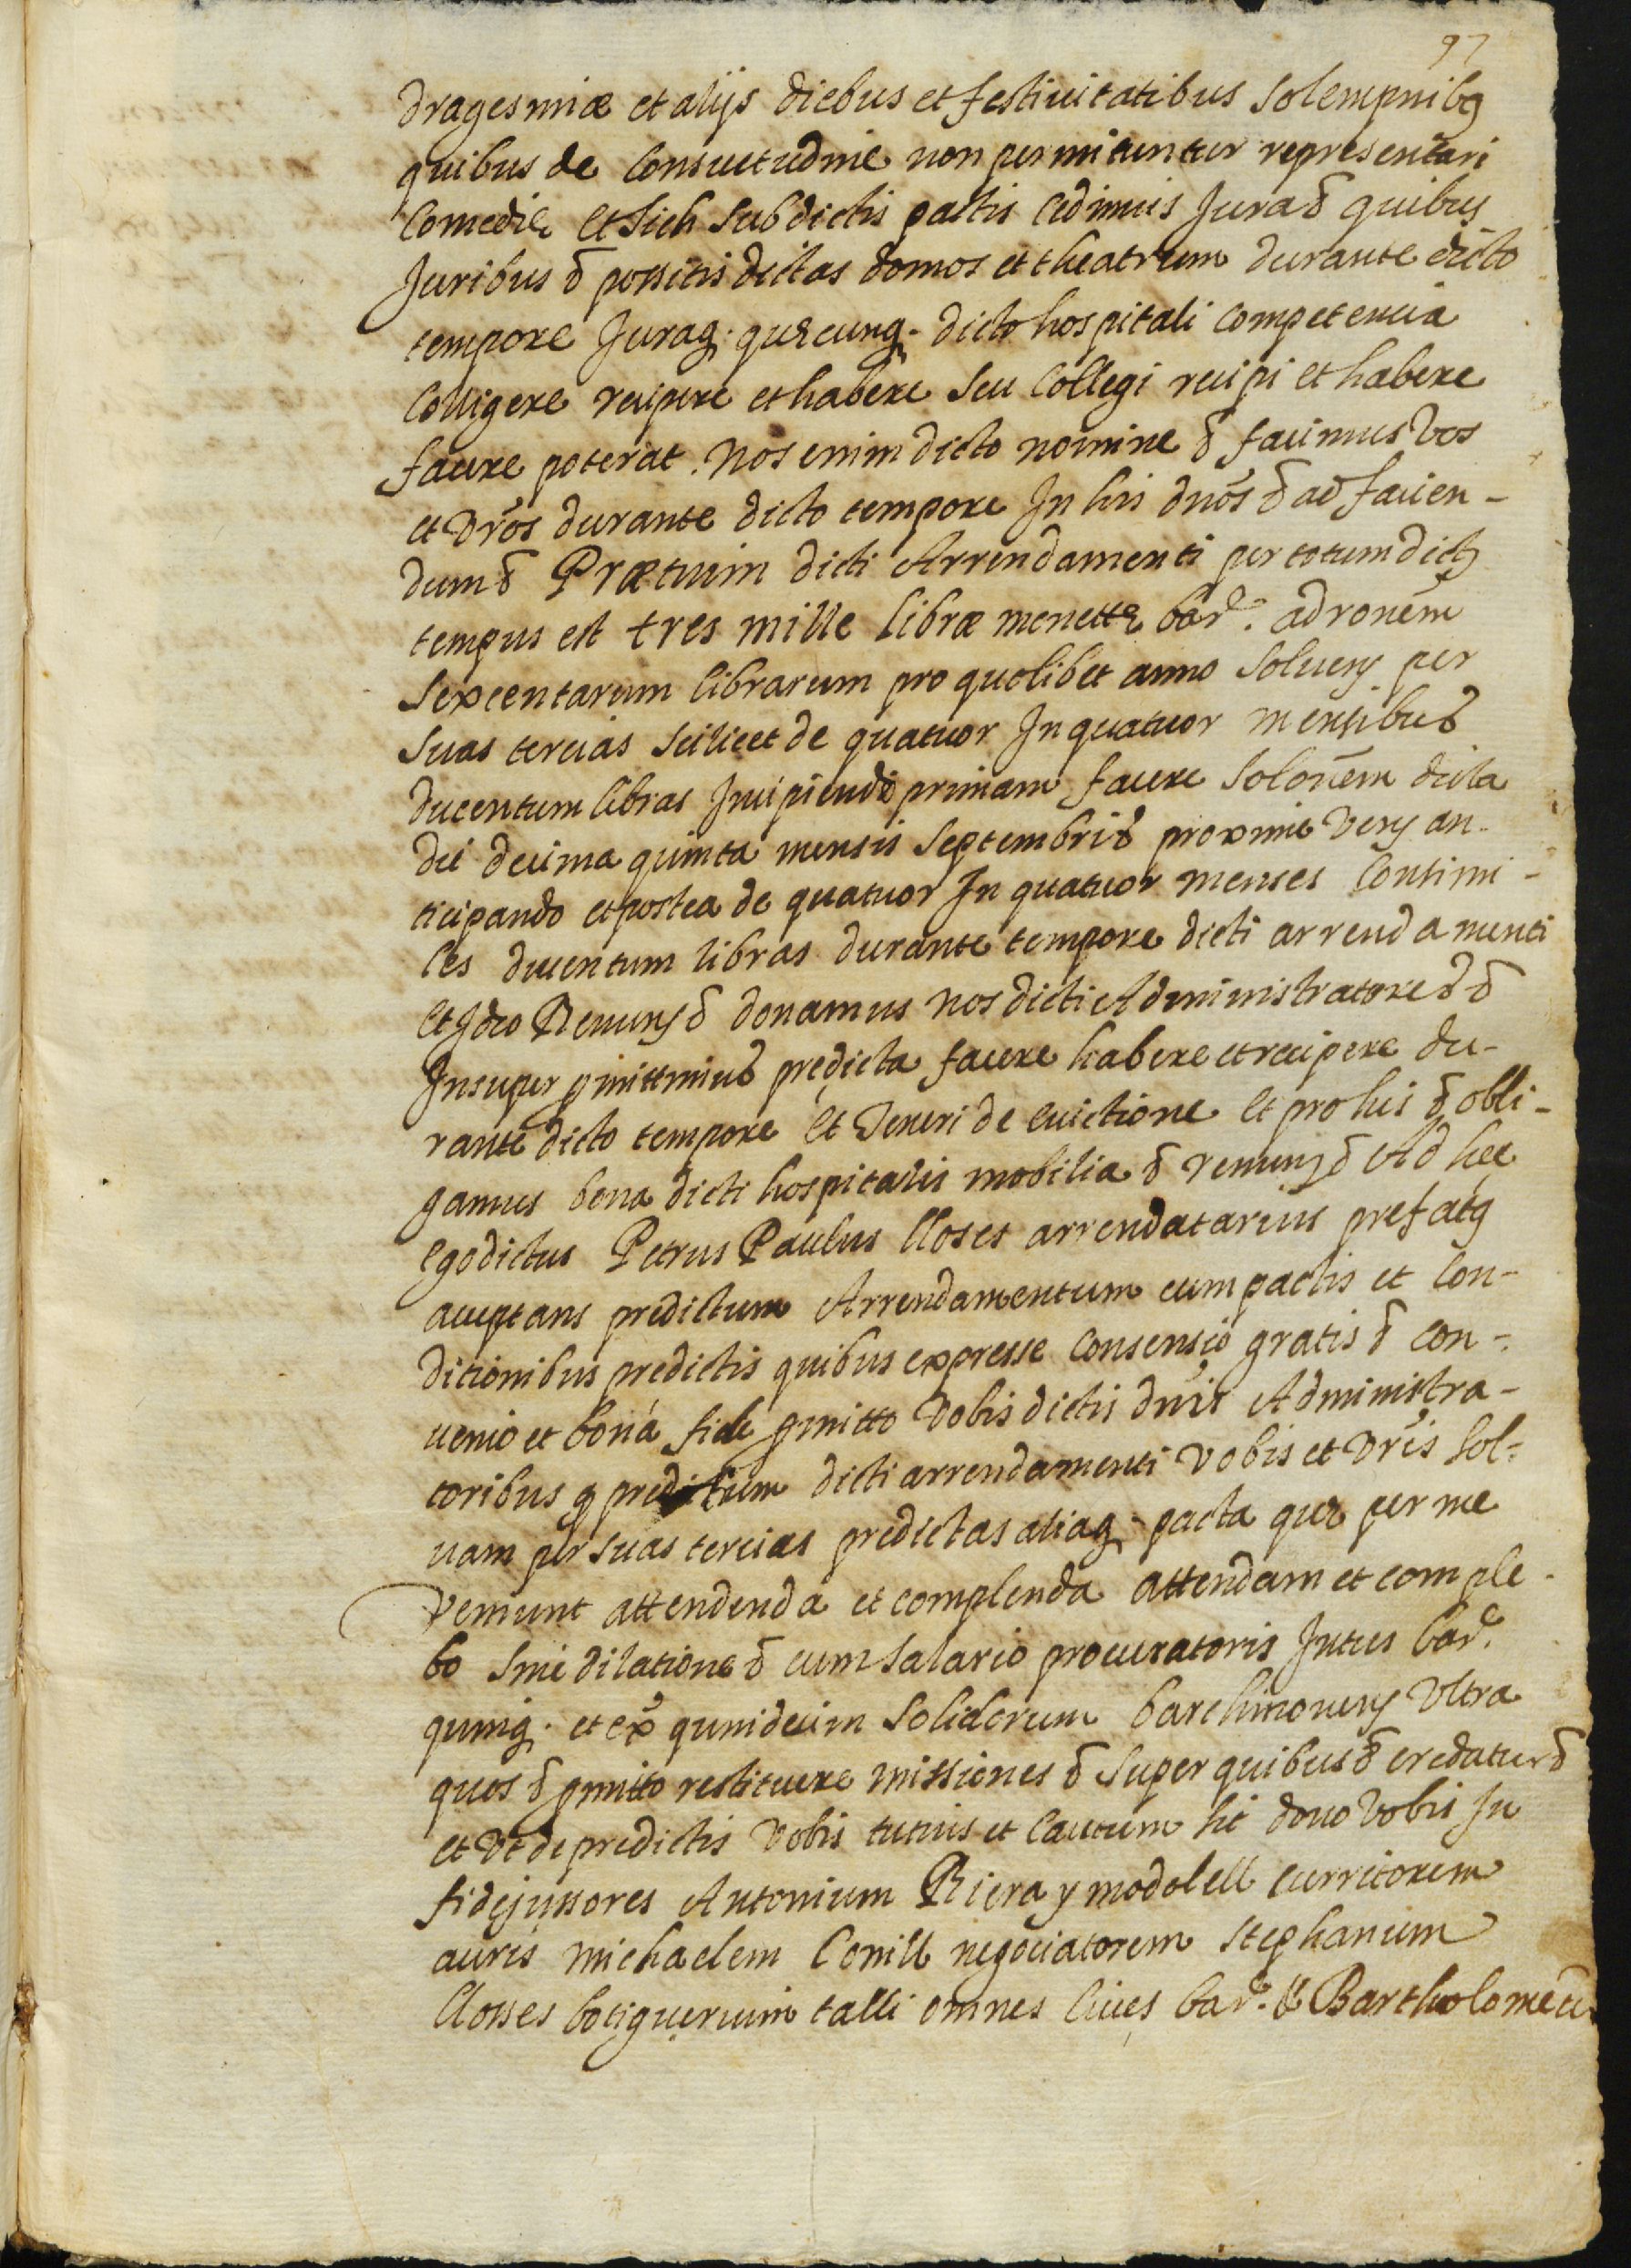 97
dragesimæ et alijs diebus et festiuitatibus solempnibꝫ
quibus de consuetudine non permituntur representari
comedie et sich sub dictis pactis cedimus Jura ⁊ quibus
Juribus ⁊ possitis dictas domos et theatrum durante dicto
tempore Juraq; quęcunq; dicto hospitali competencia
colligere recipere et habere seu colligi recipi et habere
facere poterat. Nos enim dicto nomine ⁊ facimus Vos
et Vr̃os durante dicto tempore In his dños ⁊ ad facien-
dum ⁊ Prætium dicti Arrendamenti per totum dictꝫ
tempus est tres mille libræ monettę bar͂. ad roñem
sexcentarum librarum pro quolibet anno soluenꝫ per
suas tercias scilicet de quatuor In quatuor mensibus
ducentum libras Incipiendo primam facere soloñem dicta
die decima quinta mensis Septembris proxime Venꝫ an-
ticipando et postea de quatuor In quatuor menses consimi-
les ducentum libras durante tempore dicti arrendamenti
et Ideo Renunꝫ ⁊ donamus nos dicti Administratores ⁊
Insuper ꝓmittimus predicta facere habere et recipere du-
rante dicto tempore et Teneri de euictione et pro his ⁊ obli-
gamus bona dicti hospitalis mobilia ⁊ renunꝫ ⁊ Ad hęc
ego dictus Petrus Paulus lloses arrendatarius prefatꝫ
acceptans predictum Arrendamentum cum pactis et con-
ditionibus predictis quibus expresse consensio gratis ⁊ con-
uenio et bona fide ꝓmitto Vobis dictis dñis Administra-
toribus ꝙ preditium dicti arrendamenti Vobis et Vr̃is sol-
uam per suas tercias predictas aliaq; pacta quę per me
Veniunt attendenda et complenda attendam et comple-
bo sine dilatione ⁊ cum salario procuratoris Intus bar͂.
quinq; et ex̃ quindecim solidorum barchinonenꝫ Vltra
quos ⁊ ꝓmitto restituere missiones ⁊ super quibus ⁊ credatur ⁊
et Vt de predictis Vobis tutius et cautum sit dono Vobis In
fidejussores Antonium Riera y modolell curritorem
auris michaelem Conill negociatorem stephanum
llosses botiguerium talli omnes ciues bar͂. & Bartholomeũ